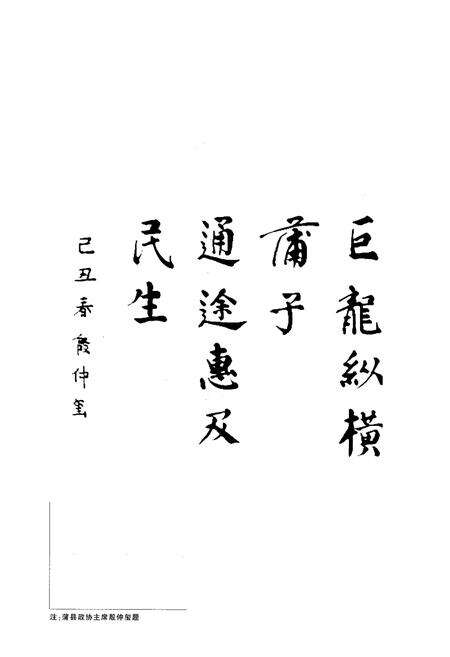 巨龍纵横
蒲子
通途惠及
民生
己丑春殷仲玺
注:蒲县政协主席殷仲玺题